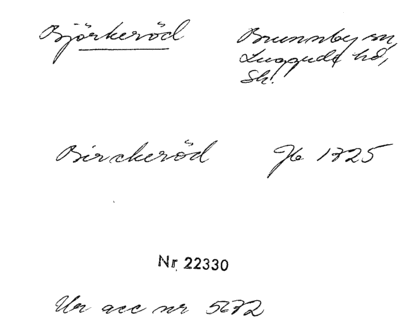 Björkeröd
Brunnby sn,
Luggude hd,
Sk.
Birckeröd Jb 1725
Nr 22330
Ur acc nr 5672